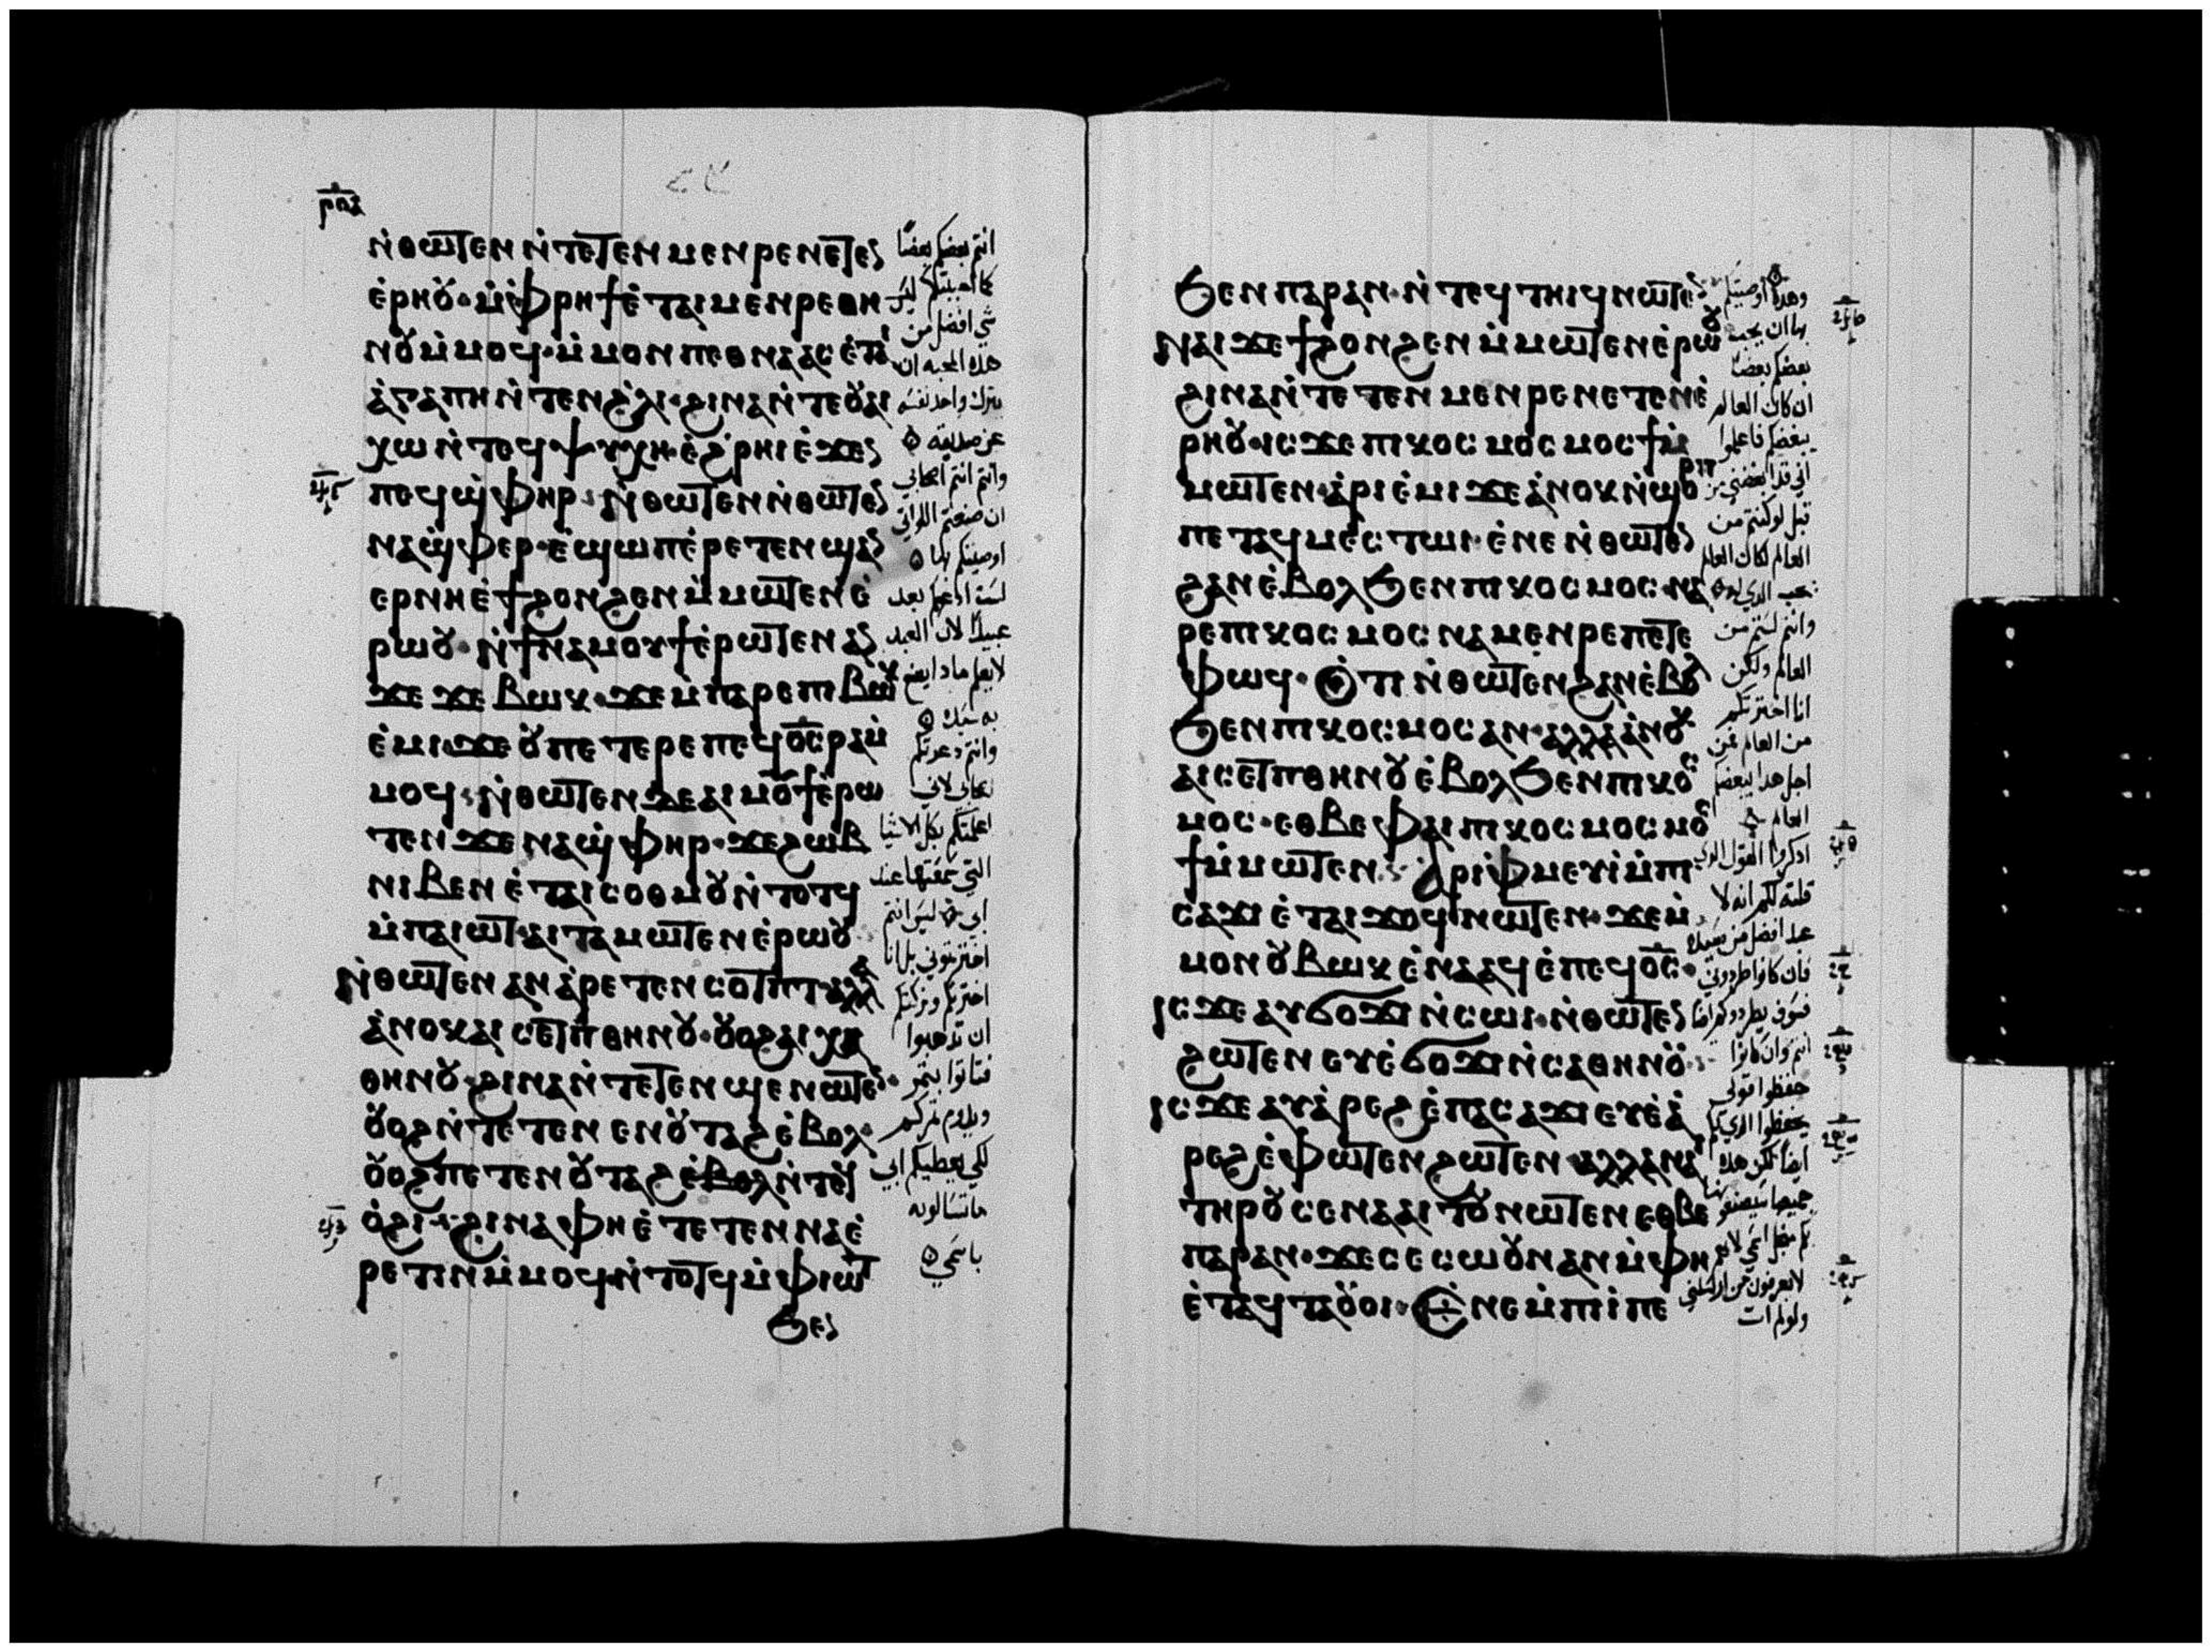 ⲛ̀ⲑⲱⲧⲉⲛ ⲛ̀ⲧⲉⲧⲉⲛⲙⲉⲛⲣⲉⲛⲉⲧⲉⲛ
ⲉ̀ⲣⲏⲟⲩ· ⲙ̀ⲫⲣⲏϯ ⲉ̀ⲧⲁⲓⲙⲉⲛⲣⲉⲑⲏ
ⲛⲟⲩ ⲙ̀ⲙⲟϥ· ⲙ̀ⲙⲟⲛ ⲡⲉⲑⲛⲁⲁⲥ ⲉ̀ⲧⲁⲓ
ⲁ̀ⲅⲁⲡⲏ ⲛ̀ⲧⲉⲛϩ̀ⲗⲓ· ϩⲓⲛⲁ ⲛ̀ⲧⲉⲟⲩⲁⲓ
ⲭⲱ ⲛ̀ⲧⲉϥⲯⲩⲭⲏ· ⲉ̀ϩ̀ⲣⲏⲓ ⲉ̀ϫⲉⲛ
ⲡⲉϥϣ̀ⲫⲏⲣ· ⲛ̀ⲑⲱⲧⲉⲛ ⲛ̀ⲑⲱⲧⲉⲛ
ⲛⲁϣ̀ⲫⲉⲣ· ⲉ̀ϣⲱⲡ ⲉ̀ⲣⲉⲧⲉⲛϣⲁⲛ
ⲉⲣⲛⲏⲉ̀ϯϩⲟⲛϩⲉⲛ ⲙ̀ⲙⲱⲧⲉⲛ ⲉ̀
ⲣⲱⲟⲩ· ⲛ̀ϯⲛⲁⲙⲟⲩϯ ⲉ̀ⲣⲱⲧⲉⲛ ⲁⲛ
ϫⲉ ϫⲉ ⲃⲱⲕ· ϫⲉ ⲙ̀ⲡⲁⲣⲉⲡⲓⲃⲱⲕ
ⲉ̀ⲙⲓ· ϫⲉ ⲟⲩ ⲡⲉⲧⲉⲣⲉⲡⲉϥⲟ̅ⲥ̅ ⲣⲁⲙ̀
ⲙⲟϥ· ⲛ̀ⲑⲱⲧⲉⲛ ϫⲉⲁⲓⲙⲟⲩϯ ⲉ̀ⲣⲱ
ⲧⲉⲛ ϫⲉ ⲛⲁϣ̀ⲫⲏⲣ· ϫⲉ ϩⲱⲃ
ⲛⲓⲃⲉⲛ ⲉ̀ⲧⲁⲓⲥⲟⲑⲙⲟⲩ ⲛ̀ⲧⲟⲧϥ
ⲙ̀ⲡⲁⲓⲱⲧ· ⲁⲓⲧⲁⲙⲱⲧⲉⲛ ⲉ̀ⲣⲱⲟⲩ
ⲛ̀ⲑⲱⲧⲉⲛ ⲁⲛ ⲁ̀ⲣⲉⲧⲉⲛⲥⲟⲧⲡⲧ· ⲁⲗⲗⲁ
ⲁ̀ⲛⲟⲕ ⲁⲓⲥⲉⲧⲡⲑⲏⲛⲟⲩ· ⲟⲩⲟϩ ⲁⲓⲭⲁ
ⲑⲏⲛⲟⲩ· ϩⲓⲛⲁ ⲛ̀ⲧⲉⲧⲉⲛϣⲉⲛⲱⲧⲉⲛ·
ⲟⲩⲟϩ ⲛ̀ⲧⲉⲧⲉⲛ ⲉⲛⲟⲩⲧⲁϩ ⲉ̀ⲃⲟⲗ·
ⲟⲩⲟϩ ⲡⲉⲧⲉⲛⲟⲩⲧⲁϩ ⲉ̀ⲃⲟⲗ ⲛ̀ⲧⲉϥ
ⲟ̀ϩⲓ· ϩⲓⲛⲁ ⲫⲏ ⲉ̀ⲧⲉⲧⲉⲛⲛⲁⲉ̀
ⲣⲉⲧⲓⲛ ⲙ̀ⲙⲟϥ· ⲛ̀ⲧⲟⲧϥ ⲙ̀ⲫⲓⲱⲧ
ϧⲉⲛ
انتم بعضكم بعضا
كما احببتكم ليس
شي افضل من
هذه المحبه ان
يترك واحد نفسه
عن صديقه
وانتم انتم اصحابي
ان صنعتم اللواتي
اوصيتكم بها
لست ادعوكم بعد
عبيدًا لان العبد
لايعلم ماذا يصنع
به سيده
وانتم دعوتكم
اصحابي لاني
اعلمتكم بكل الاشيا
التي سمعتها عند
ابي ليس انتم
اخترتموني بل انا
اخترتكم وتركتكم
ان تذهبوا
فتاتوا بثمر
ويدوم ثمركم
لكي يعطيكم ابي
ماتسالونه
باسمي
ϧⲉⲛ ⲡⲁⲣⲁⲛ· ⲛ̀ⲧⲉϥⲧⲏⲓϥ ⲛⲱⲧⲉⲛ
ⲛⲁⲓ ϫⲉ ϯϩⲟⲛϩⲉⲛ ⲙ̀ⲙⲱⲧⲉⲛ ⲉ̀ⲣⲱⲟⲩ
ϩⲓⲛⲁ ⲛ̀ⲧⲉⲧⲉⲛⲙⲉⲛⲣⲉⲛⲉⲧⲉⲛⲉ̀
ⲣⲏⲟⲩ· ⲓⲥϫⲉ ⲡⲓⲕⲟⲥⲙⲟⲥ ⲙⲟⲥϯ ⲙ̀
ⲙⲱⲧⲉⲛ· ⲁ̀ⲣⲓⲉ̀ⲙⲓ ϫⲉ ⲁ̀ⲛⲟⲕ ⲛ̀ϣⲟⲣⲡ
ⲡⲉⲧⲁϥⲙⲉⲥⲧⲱⲓ· ⲉ̀ⲛⲉ ⲛ̀ⲑⲱⲧⲉⲛ
ϩⲁⲛⲉ̀ⲃⲟⲗ ϧⲉⲛ ⲡⲓⲕⲟⲥⲙⲟⲥ· ⲛⲁ
ⲣⲉⲡⲓⲕⲟⲥⲙⲟⲥ ⲛⲁⲙⲉⲛⲣⲉⲡⲉⲧⲉ
ⲫⲱϥ· ⲟ̀ⲧⲓ ⲛ̀ⲑⲱⲧⲉⲛ ϩⲁⲛⲉ̀ⲃⲟⲗ
ϧⲉⲛ ⲡⲓⲕⲟⲥⲙⲟⲥ ⲁⲛ· ⲁⲗⲗⲁ ⲁ̀ⲛⲟⲕ
ⲁⲓⲥⲉⲧⲡⲑⲏⲛⲟⲩ ⲉ̀ⲃⲟⲗ ϧⲉⲛ ⲡⲓⲕⲟⲥ
ⲙⲟⲥ· ⲉⲑⲃⲉⲫⲁⲓ ⲡⲓⲕⲟⲥⲙⲟⲥ ⲙⲟⲥ
ϯ ⲙ̀ⲙⲱⲧⲉⲛ· ⲁⲣⲓⲫⲙⲉⲩⲓ ⲙ̀ⲡⲓ
ⲥⲁϫⲓ ⲉ̀ⲧⲁⲓϫⲟϥ ⲛⲱⲧⲉⲛ· ϫⲉ ⲙ̀
ⲙⲟⲛ ⲟⲩⲃⲱⲕ ⲉ̀ⲛⲁⲁϥ ⲉ̀ⲡⲉϥⲟ̅ⲥ̅·
ⲓⲥϫⲉ ⲁⲩϭⲟϫⲓ ⲛ̀ⲥⲱⲓ· ⲛ̀ⲑⲱⲧⲉⲛ
ϩⲱⲧⲉⲛ ⲉⲩⲉ̀ϭⲟϫⲓ ⲛ̀ⲥⲁⲑⲏⲛⲟⲩ
ⲓⲥϫⲉ ⲁⲩⲁ̀ⲣⲉϩ ⲉ̀ⲡⲁⲥⲁϫⲓ ⲉⲩⲉ̀ⲁ̀
ⲣⲉϩ ⲉ̀ⲫⲱⲧⲉⲛ ϩⲱⲧⲉⲛ· ⲁⲗⲗⲁ ⲛⲁⲓ
ⲧⲏⲣⲟⲩ ⲥⲉⲛⲁⲁⲓⲧⲟⲩ ⲛⲱⲧⲉⲛ ⲉⲑⲃⲉ
ⲡⲁⲣⲁⲛ· ϫⲉ ⲥⲉⲥⲱⲟⲩⲛ ⲁⲛ ⲙ̀ⲫⲏ
ⲉ̀ⲧⲁϥⲧⲁⲟⲩⲟⲓ· ⲉ̀ⲛⲉ ⲙ̀ⲡⲓⲓ̀ ⲡⲉ
وهذه اوصيتكم
بها ان يحب
بعضكم بعضا
ان كان العالم
يبغضكم فاعلموا
اني قد ابغضني من
قبل لو كنتم من
العالم لكان العالم
يحب الذي له
وانتم لستم من
العالم ولكن
انا اخترتكم
من العالم من
اجل هذا يبغضكم
العالم
اذكروا القول الذي
قلته لكم انه لا
عبد افضل من سيده
فان كانوا طردوني
فسوف يطردوكم ايضا
انتم وان كانوا
حفظوا قولي
يحفظوا الذي لكم
ايضا لكن هذه
جميعها سيصنعونها
لايعرفون من ارسلني
ولو لم ات